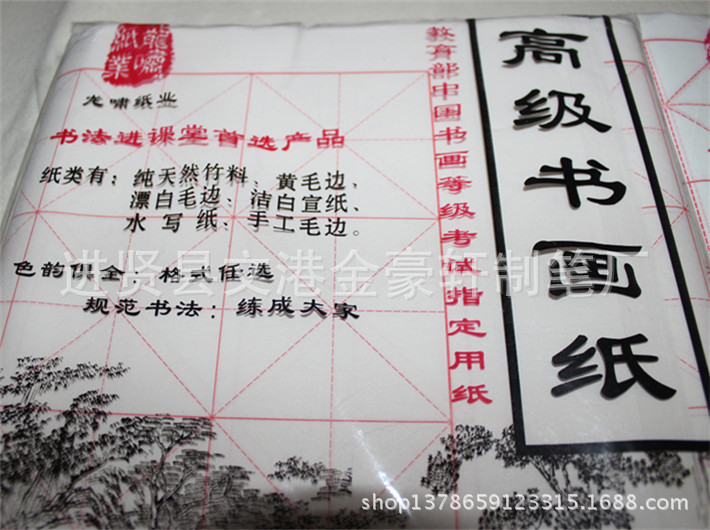 龍嘯
紙業
龙啸纸业
书法进课堂首选产品
纸类有：纯天然竹料、黄毛边、
漂白毛边、洁白宣纸、
水写纸、手工毛边。
色韵俱全：格式任选
规范书法：练成大家
教育部中国书画等级考试指定用纸
高级书画纸
进贤县文港金豪轩制笔厂
shop1378659123315.1688.com